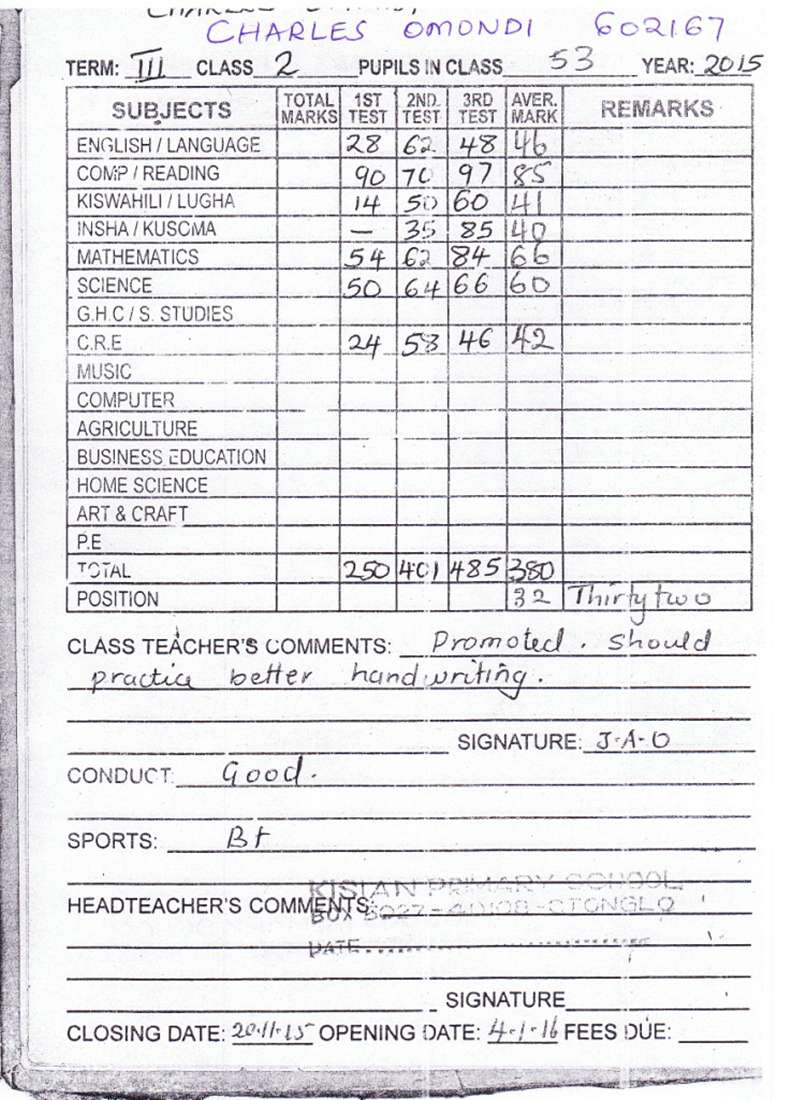 CHARLES OMONDI 602167
TERM: III CLASS 2 PUPILS IN CLASS 53 YEAR: 2015
SUBJECTS TOTAL MARKS 1ST TEST 2ND. TEST 3RD TEST AVER. MARK REMARKS
ENGLISH / LANGUAGE 28 62 48 46
COMP / READING 90 70 97 85
KISWAHILI / LUGHA 14 50 60 41
INSHA / KUSOMA — 35 85 40
MATHEMATICS 54 62 84 66
SCIENCE 50 64 66 60
G.H.C / S. STUDIES
C.R.E 24 58 46 42
MUSIC
COMPUTER
AGRICULTURE
BUSINESS EDUCATION
HOME SCIENCE
ART & CRAFT
P.E
TOTAL 250 401 485 380
POSITION 32 Thirty two
CLASS TEACHER'S COMMENTS: Promoted. Should
practice better handwriting.
SIGNATURE: J-A-O
CONDUCT: Good.
SPORTS: Bt
KISIAN PRIMARY SCHOOL
HEADTEACHER'S COMMENTS:
BOX 8027-40108-OTONGLO
DATE
SIGNATURE
CLOSING DATE: 20.11.15 OPENING DATE: 4-1-16 FEES DUE: